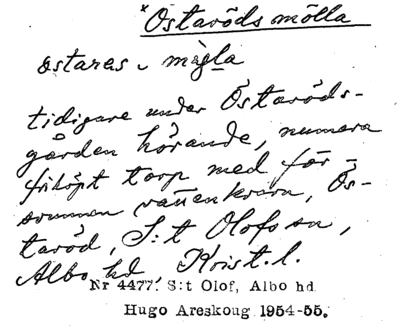 *Östaröds mölla
östaras ᴗ mägla
tidigare under Östaröds-
gården hörande, numera
friköpt torp med för-
svunnen vattenkvarn, Ös-
taröd, S:t Olofs sn,
Albo hd, Krist. l.
Nr 4477. S:t Olof, Albo hd
Hugo Areskoug 1954-55.